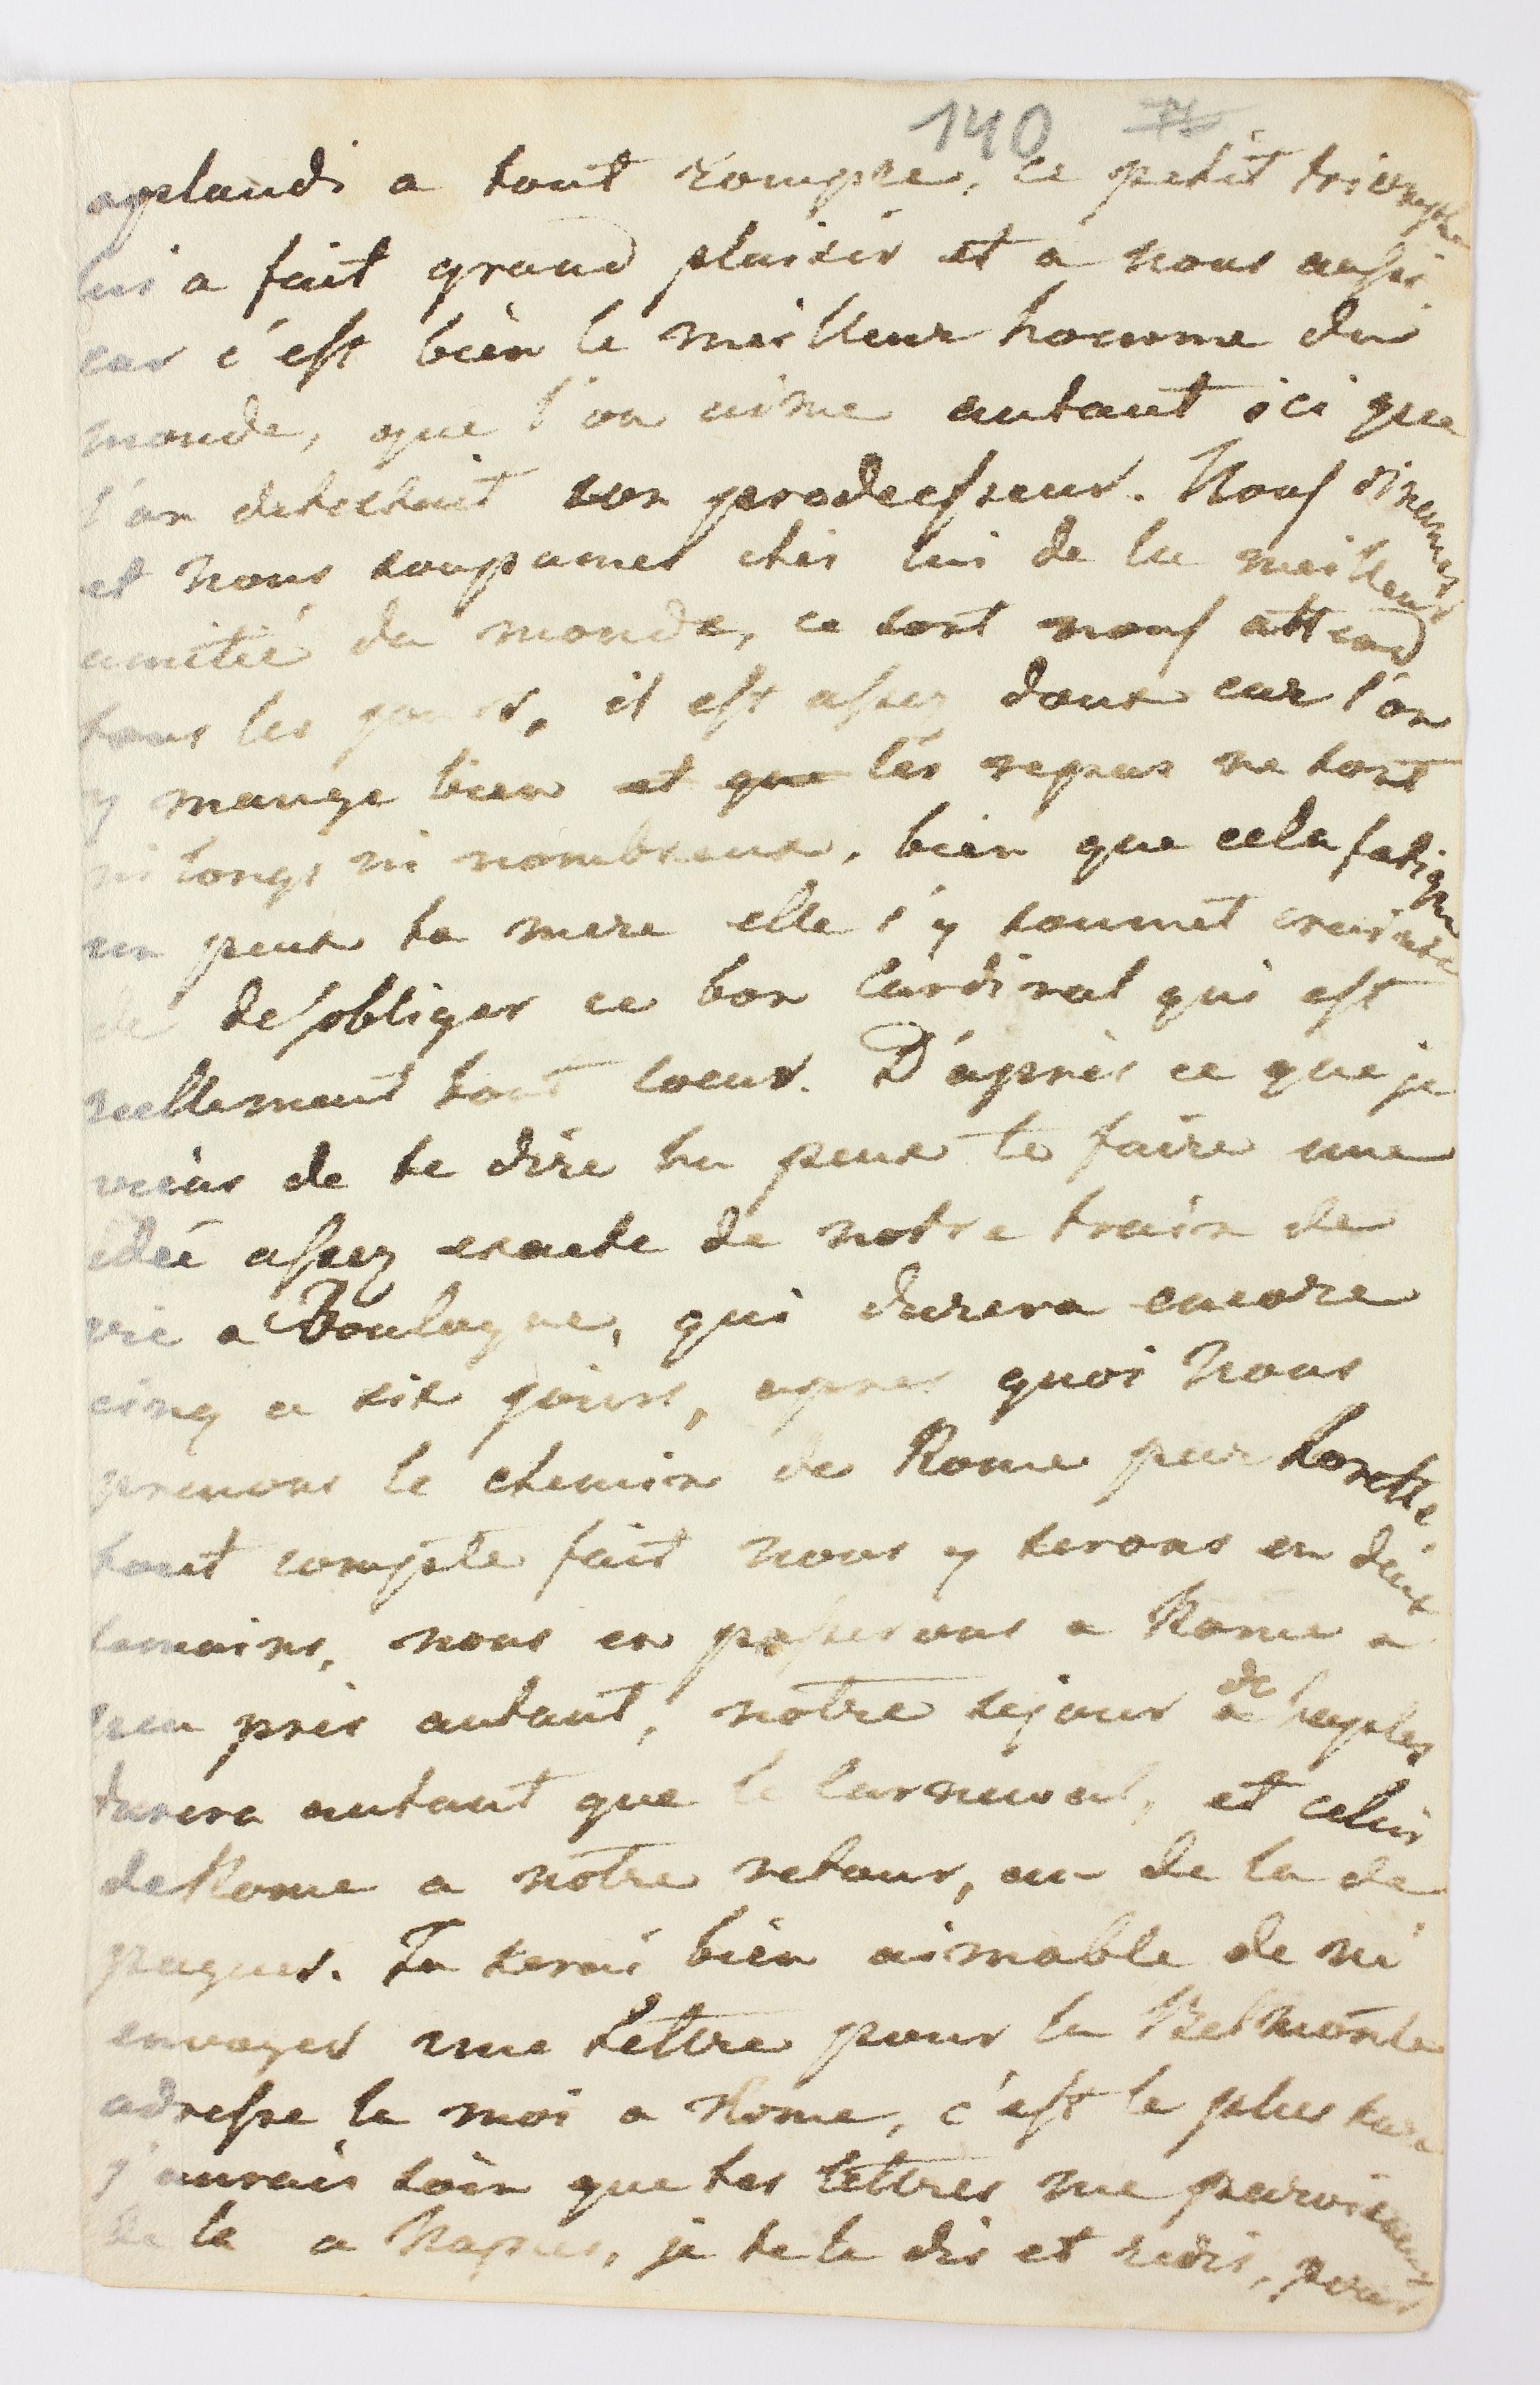 140
aplaudi a tout rompre, ce petit triomphe
lui a fait grand plaisir et a nous aussi
car c'est bien le meilleur homme du
monde, que l'on aime autant ici que
l'on detestait son prodecesseur. Nous dinames
et nous soupames chés lui de la meilleur
amitié du monde, ce soir nous attend
tous les jours, il est assez doux car l'on
y mange bien et que lés repas ne sont
ni longs ni nombreux, bien que cela fatigue
un peux ta mere elle s'y soumet crainte
de desobliger ce bon Cardinal qui est
reellement tout coeur. D'après ce que je
viens de te dire tu peux te faire une
idée assez exacte de notre train de
vie a Boulogne, qui durera encore
cinq a six jours, apres quoi nous
prenons le chemin de Rome par Lorette,
tout compte fait nous y serons en deux
semaines, nous en passerons a Rome a
peu près autant, notre sejour de a Naples
durera autant que le Carneval, et celui
de Rome a notre retour, au de la de
paques. Tu serais bien aimable de m'
envoyer une lettre pour la Belmonte
adresse le moi a Rome, c'est le plus sure
j'aurais soin que tes lettres me parviennent
de la a Naples, je te le dis et redis, pour